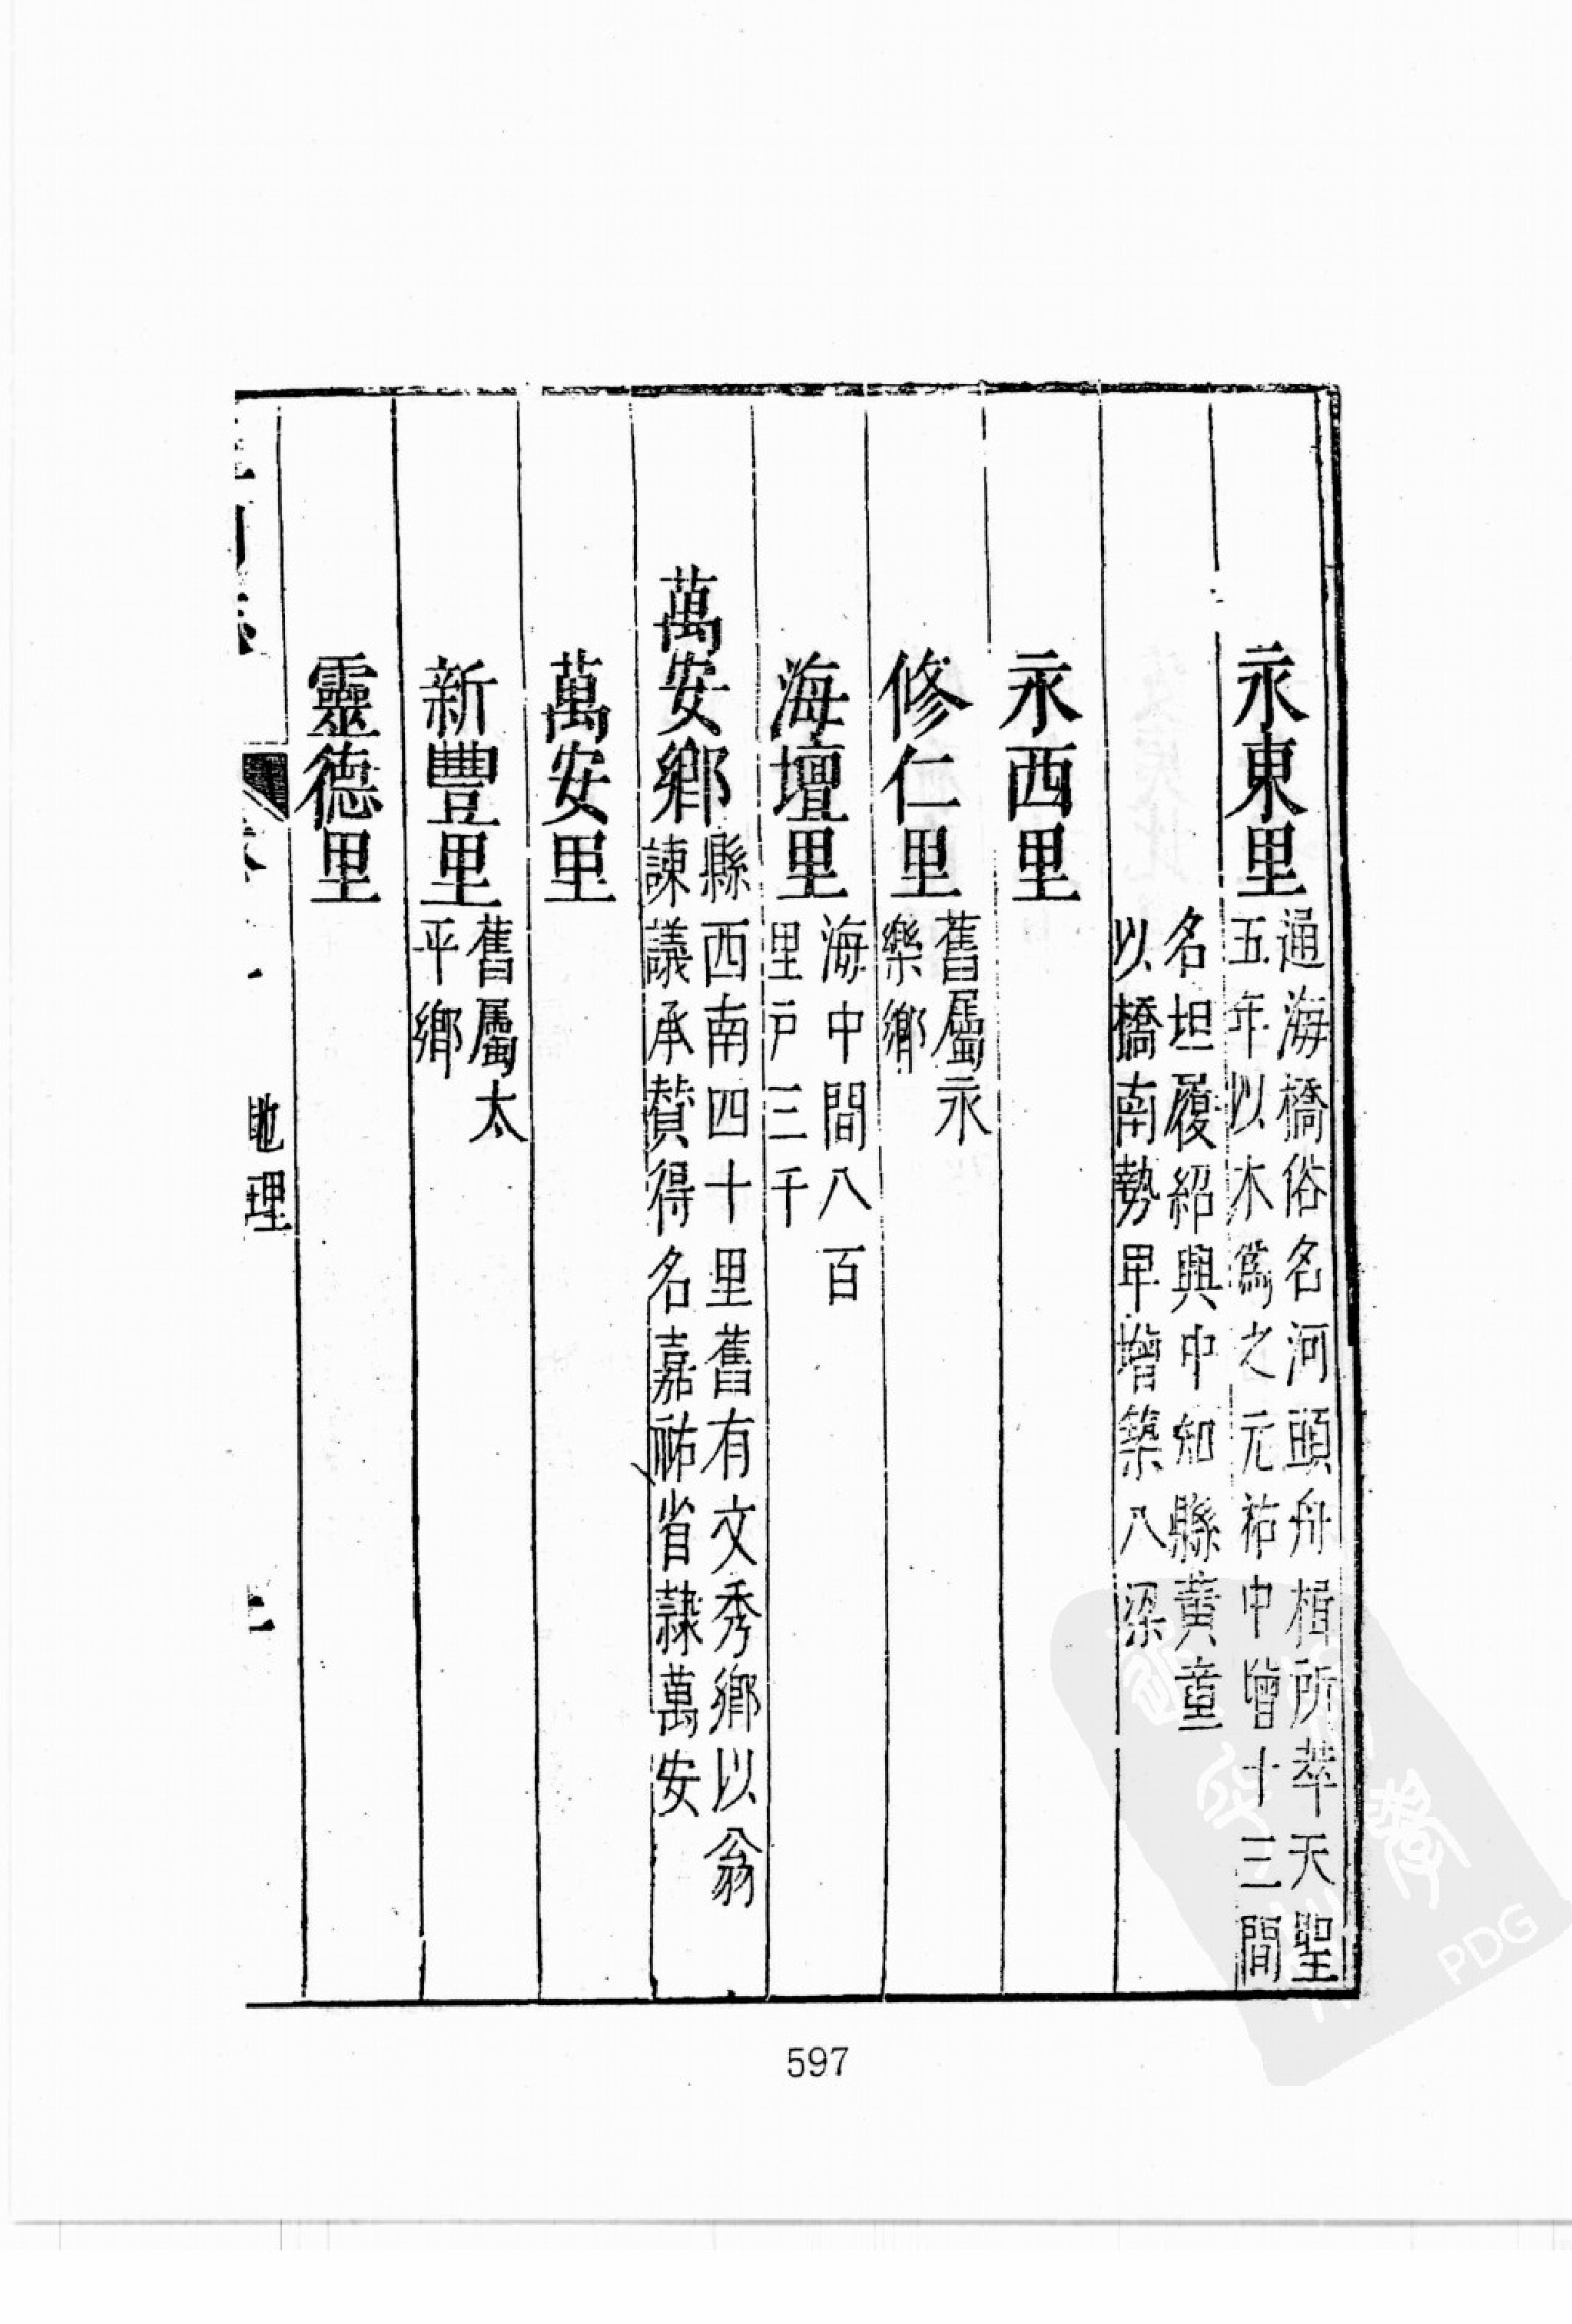 永東里
通海橋俗名河頭舟楫所萃天聖
五年以木爲之元祐中增十三間
名坦履紹興中知縣黃童
以橋南勢卑增築八梁
永西里
修仁里
舊屬永
樂鄉
海壇里
海中間八百
里戶三千
萬安鄉
縣西南四十里舊有文秀鄉以翁
諫議承贊得名嘉祐省隸萬安
萬安里
新豐里
舊屬太
平鄉
靈德里
地理
597
PDG